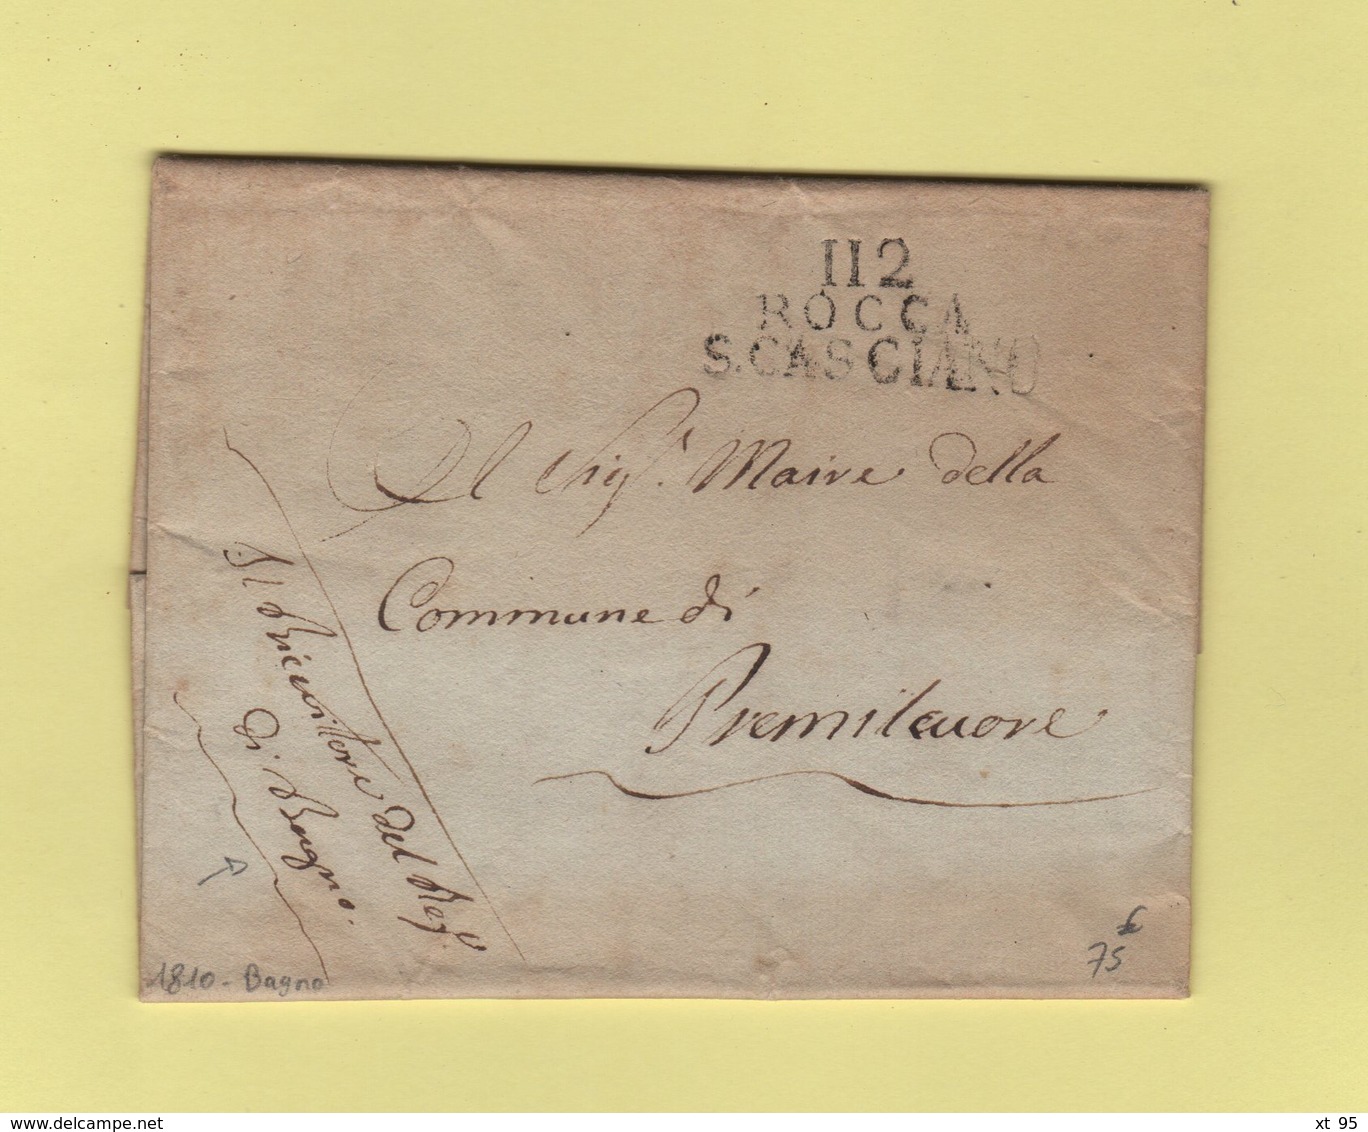 112
ROCCA
S. CASCIANO
Al Sigr. Maire della
Commune di
Premilcuore
Il Ricevitore del Regº
di Bagno.
1810 - Bagno
75
www.delcampe.net
xt 95